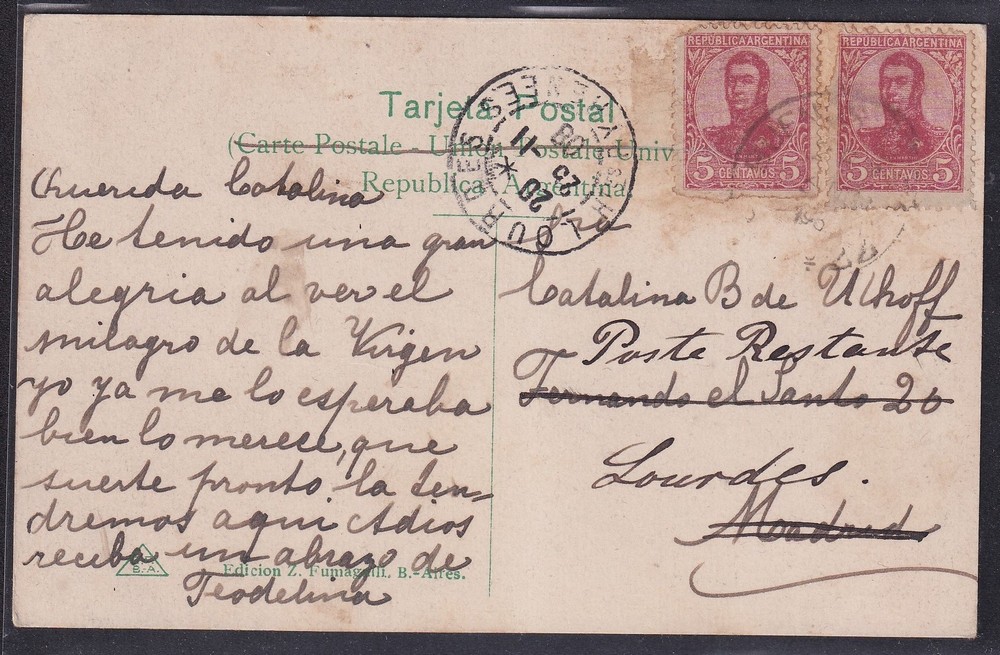 Tarjeta Postal
(Carte Postale - Union Postale Univ
Republica Argentina
REPUBLICA ARGENTINA
5 CENTAVOS 5
REPUBLICA ARGENTINA
5 CENTAVOS 5
LOURDES
Querida Catalina
He tenido una gran
alegria al ver el
milagro de la Virgen
yo ya me lo esperaba
bien lo merece, que
suerte pronto la ten=
dremos aqui Adios
reciba un abrazo de
Teodelina
B.A.
Edicion Z. Fumagalli. B.-Aires.
Catalina B de Ulhoff
Poste Restante
Fernando el Santo 20
Lourdes.
Madrid